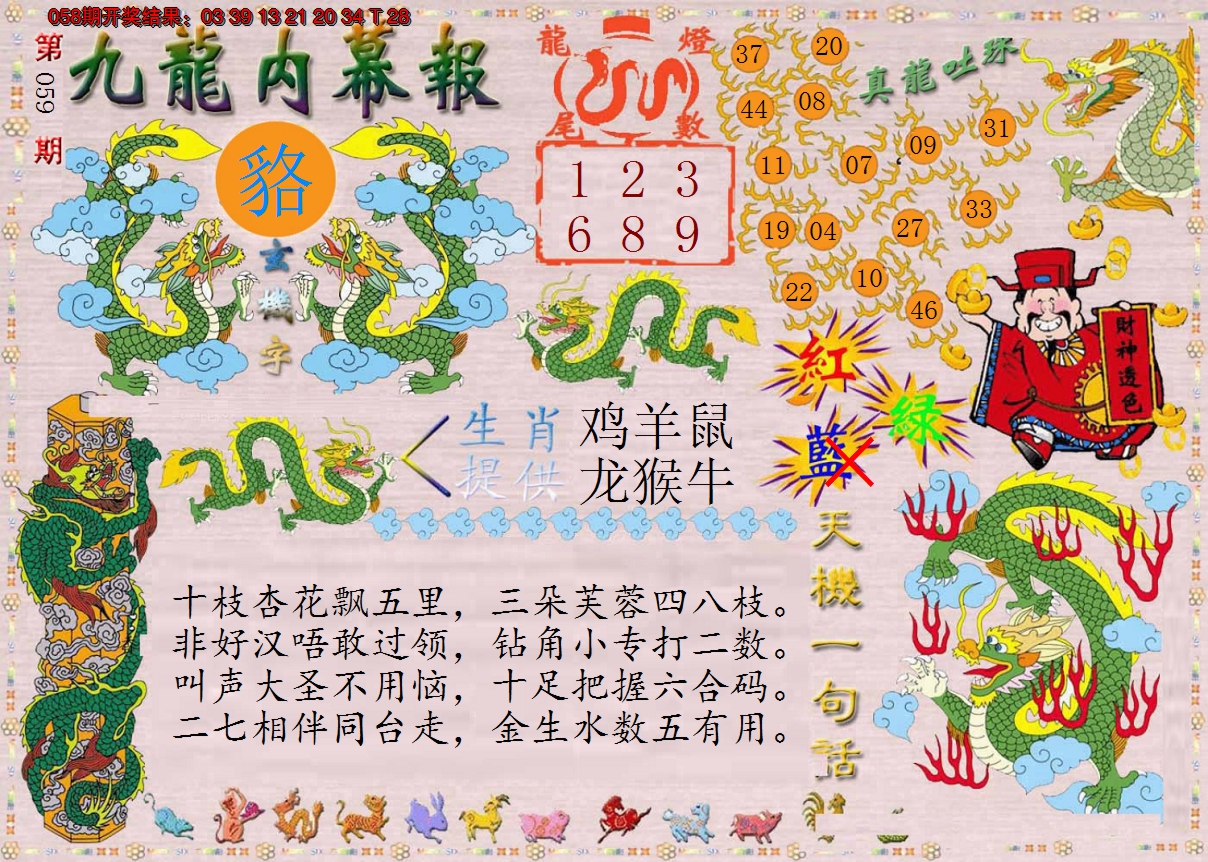 058期开奖结果：03 39 13 21 20 34 T 28
第
059
期
九龍内幕報
貉
玄
機
字
龍 燈
尾 數
1 2 3
6 8 9
真龍吐珠
37
20
44
08
31
09
11
07
33
19
04
27
10
22
46
財神透色
紅
綠
藍
生肖
提供
鸡羊鼠
龙猴牛
十枝杏花飘五里，三朵芙蓉四八枝。
非好汉唔敢过领，钻角小专打二数。
叫声大圣不用恼，十足把握六合码。
二七相伴同台走，金生水数五有用。
天機一句话